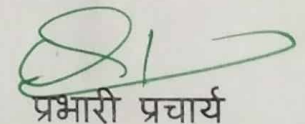 प्रभारी प्रचार्य